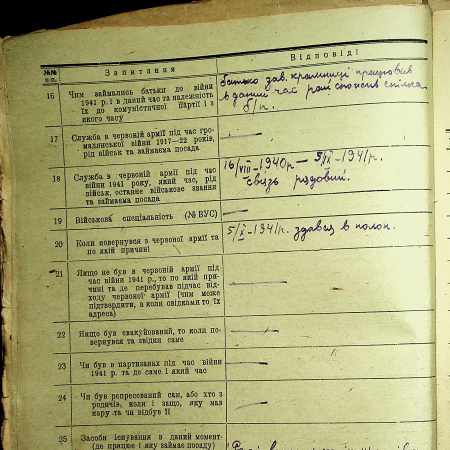 №№ п.п.
Запитання
Відповіді
16 Чим займались батьки до війни
1941 р. і в даний час та належність
їх до комуністичної партії і з
якого часу
батько зав. крамниці працював
в даний час рай спожив спілка
б/п.
17 Служба в червоній армії під час гро-
мадянської війни 1917—22 років,
рід військ та займаєма посада
—
18 Служба в червоній армії під час
війни 1941 року, який час, рід
військ, останнє військове звання
та займаєма посада
16/VIII-1940р — 5/IX-1941р.
связь рядовий.
19 Військова спеціальність (№ ВУС)
—
20 Коли повернувся з червоної армії та
по якій причині
5/X-1941р. здався в полон.
21 Якщо не був в червоній армії під
час війни 1941 р., то по якій при-
чині та де перебував підчас від-
ходу червоної армії (чим може
підтвердити, а коли свідками то їх
адреса)
—
22 Якщо був евакуйований, то коли по-
вернувся та звідки саме
—
23 Чи був в партизанах під час війни
1941 р. та де саме і який час
—
24 Чи був репресований сам, або хто з
родичів, коли і защо, яку мав
кару та чи відбув її
—
25 Засоби існування в даний момент
(де працює і яку займає посаду)